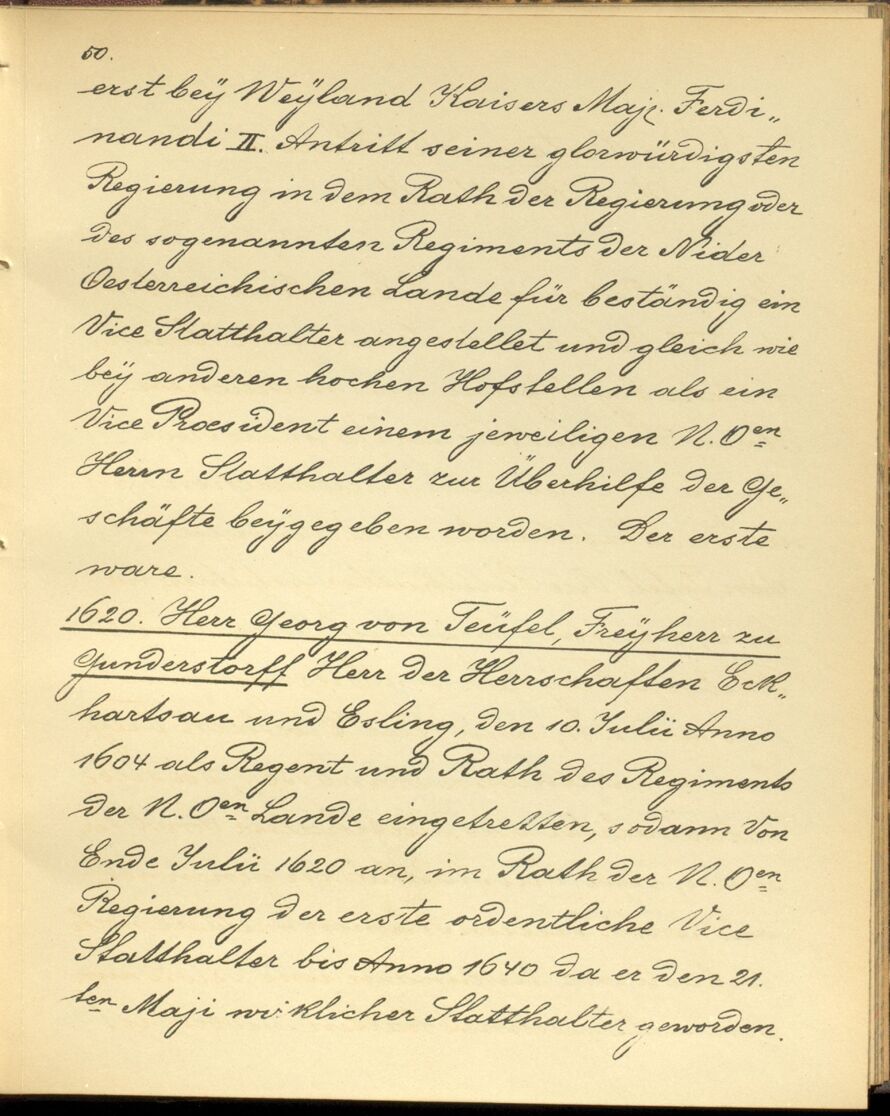 50.
erst beÿ Weÿland Kaisers Maj. Ferdi„
nandi II. Antritt seiner glorwürdigsten
Regierung in dem Rath der Regierung oder
des sogenannten Regiments der Nider
Oesterreichischen Lande für beständig ein
Vice Statthalter angestellet und gleich wie
beÿ anderen hochen Hofstellen als ein
Vice Præsident einem jeweiligen N. Oen
Herrn Statthalter zur Überhilfe der Ge„
schäfte beÿgegeben worden. Der erste
ware.
1620. Herr Georg von Teüfel, Freÿherr zu
Gunderstorff Herr der Herrschaften Eck„
hartsau und Esling, den 10. Julii Anno
1604 als Regent und Rath des Regiments
der N. Oen Lande eingetretten, sodann von
Ende Julii 1620 an, im Rath der N. Oen
Regierung der erste ordentliche Vice
Statthalter bis Anno 1640 da er den 21.
ten Maji wirklicher Statthalter geworden.